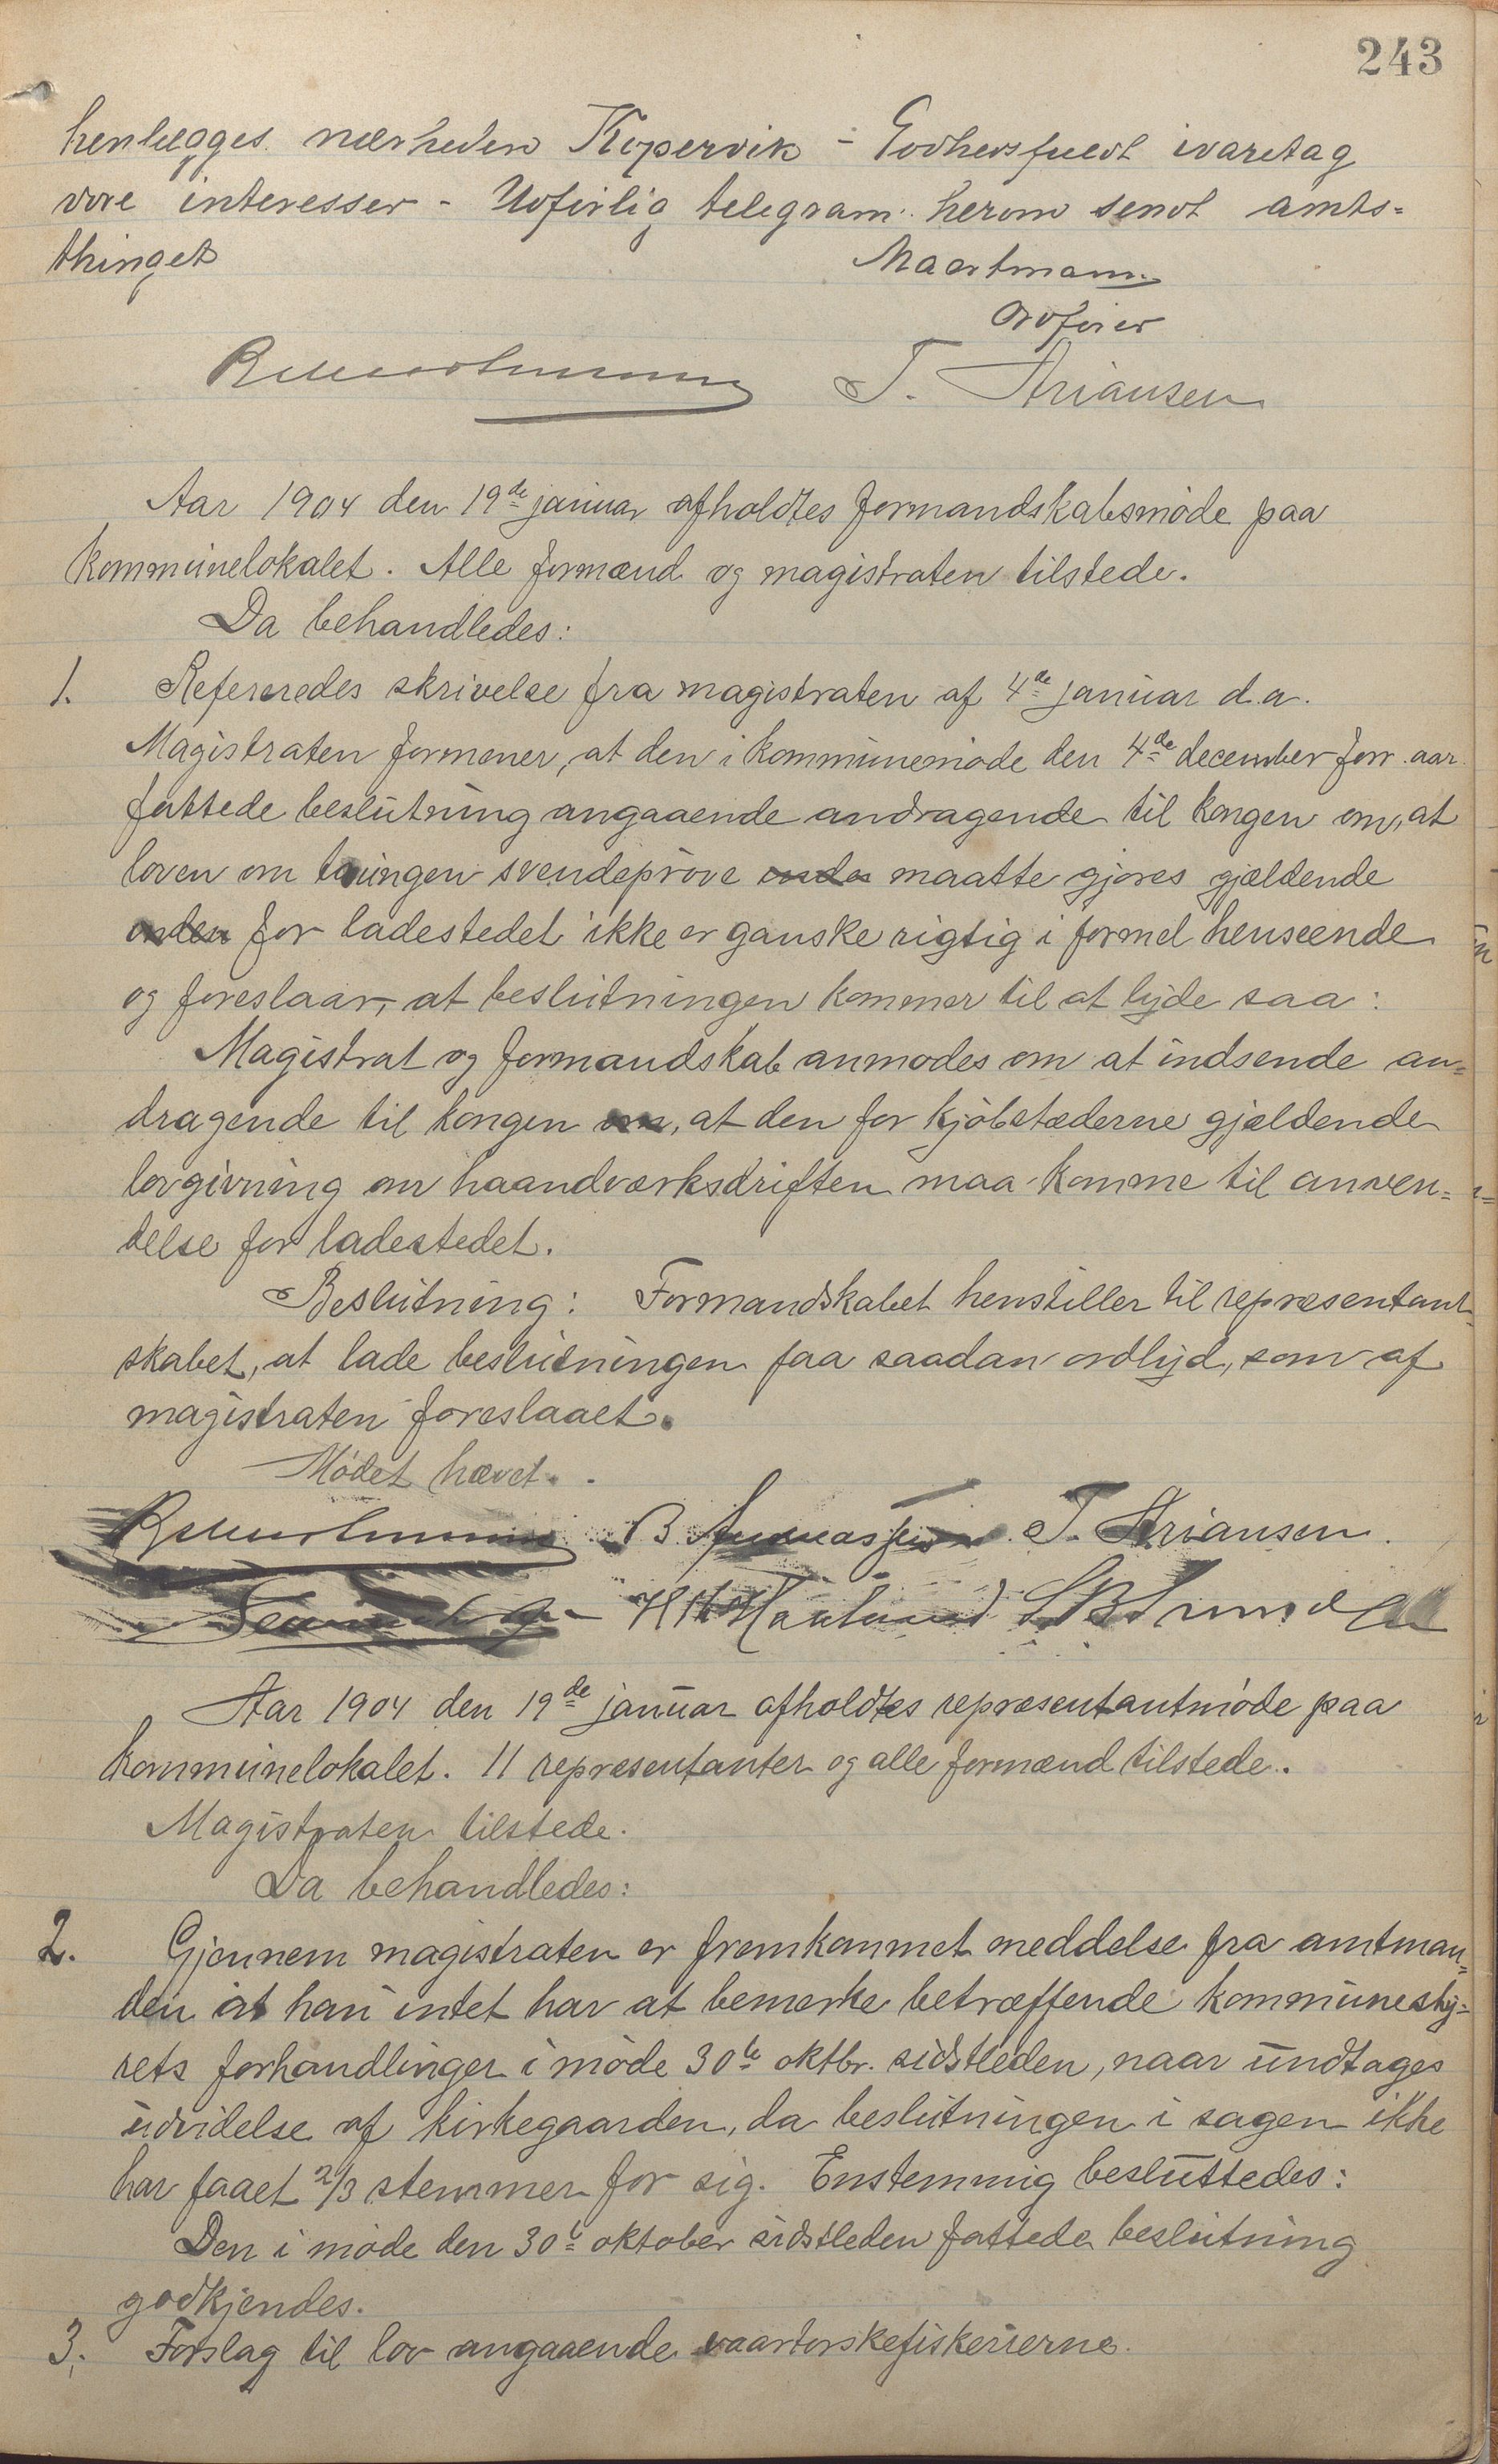 243
henlægges nærheden Kopervik - Godhedsfuldt ivaretag
vore interesser - Udførlig telegram herom sendt amts=
thinget
Maartmann
Ordfører
T. Ariansen
Aar 1904 den 19de januar afholdtes formandskabsmöde paa
kommunelokalet. Alle formænd og magistraten tilstede.
Da behandledes:
1. Refereredes skrivelse fra magistraten af 4de januar d.a.
Magistraten formener, at den i kommunemöde den 4de december forr. aar
fattede beslutning angaaende andragende til kongen om, at
loven om tvungen svendepröve maatte gjöres gjældende
for ladestedet ikke er ganske rigtig i formel henseende
og foreslaar, at beslutningen kommer til at lyde saa:
Magistrat og formandskab anmodes om at indsende an=
dragende til kongen om, at den for kjöbstæderne gjældende
lovgivning om haandværksdriften maa komme til anven=
delse for ladestedet.
Beslutning: Formandskabet henstiller til repræsentant=
skabet, at lade beslutningen faa saadan ordlyd, som af
magistraten foreslaaet.
Mödet hævet.
B. T. Ariansen.
Aar 1904 den 19de januar afholdtes repræsentantmöde paa
kommunelokalet. 11 repræsentanter og alle formænd tilstede.
Magistraten tilstede.
Da behandledes:
2. Gjennem magistraten er fremkommet meddelse fra amtman=
den at han intet har at bemerke betræffende kommunesty=
rets forhandlinger i möde 30te oktbr. sidstleden, naar undtages
udvidelse af kirkegaarden, da beslutningen i sagen ikke
har faaet 2/3 stemmer for sig. Enstemmig besluttedes:
Den i möde den 30te oktober sidstleden fattede beslutning
godkjendes.
3. Forslag til lov angaaende vaartorskefiskerierne.